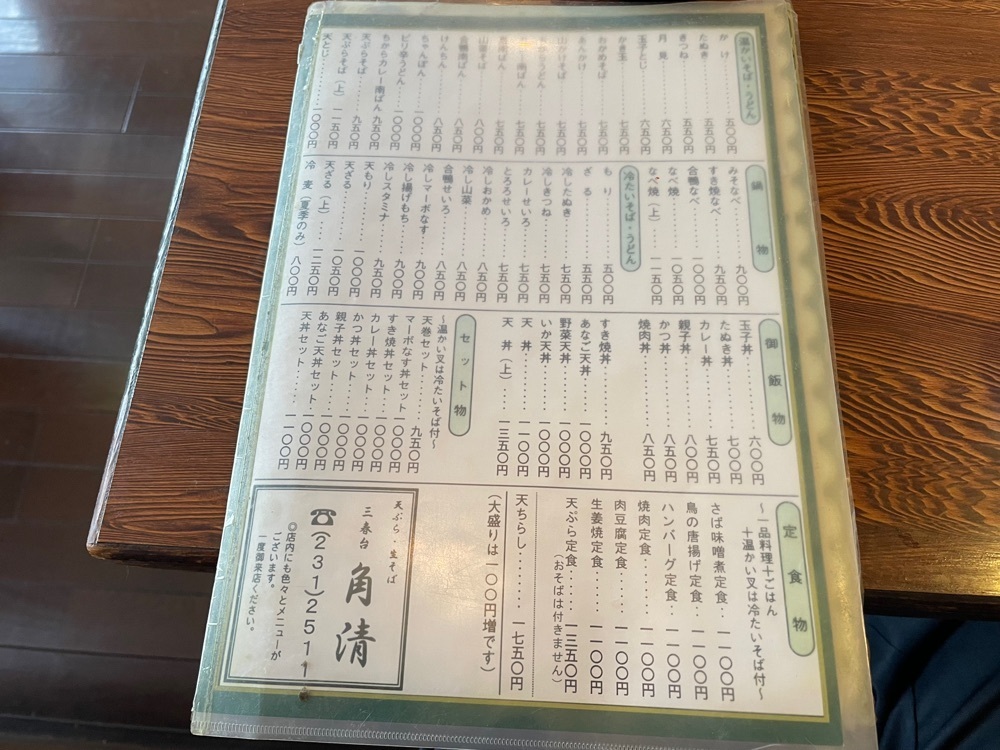 温かいそば・うどん
かけ 五〇〇円
たぬき 五五〇円
きつね 五五〇円
月見 六五〇円
玉子とじ 六五〇円
かき玉 七五〇円
おかめそば 七五〇円
あんかけ 七五〇円
山かけそば 七五〇円
うどん 七五〇円
南ばん 七五〇円
南ばん 七五〇円
山菜そば 八〇〇円
合鴨南ばん 八五〇円
けんちん 八五〇円
ちゃんぽん 一〇〇〇円
ピリ辛うどん 一〇〇〇円
ちからカレー南ばん 九五〇円
天ぷらそば 九五〇円
天ぷらそば(上) 一一五〇円
天とじ 一〇〇〇円
鍋物
みそなべ 九〇〇円
すき焼なべ 九五〇円
合鴨なべ 一〇〇〇円
なべ焼 一〇五〇円
なべ焼(上) 一一五〇円
冷たいそば・うどん
もり 五〇〇円
ざる 五五〇円
冷したぬき 七五〇円
冷しきつね 七五〇円
カレーせいろ 七五〇円
とろろせいろ 七五〇円
冷しおかめ 八五〇円
冷し山菜 八五〇円
合鴨せいろ 八五〇円
冷しマーボなす 九〇〇円
冷し揚げもち 九〇〇円
冷しスタミナ 九五〇円
天もり 一〇〇〇円
天ざる 一〇五〇円
天ざる(上) 一二五〇円
冷麦(夏季のみ) 八〇〇円
御飯物
玉子丼 六〇〇円
たぬき丼 七〇〇円
カレー丼 七五〇円
親子丼 八〇〇円
かつ丼 八五〇円
焼肉丼 八五〇円
すき焼丼 九五〇円
あなご天丼 一〇〇〇円
野菜天丼 一〇〇〇円
いか天丼 一〇〇〇円
天丼 一一〇〇円
天丼(上) 一三五〇円
セット物
〜温かい又は冷たいそば付〜
天巻セット 九五〇円
マーボなす丼セット 一〇〇〇円
すき焼丼セット 一〇〇〇円
カレー丼セット 一〇〇〇円
かつ丼セット 一〇〇〇円
親子丼セット 一〇〇〇円
あなご天丼セット 一一〇〇円
天丼セット 一一〇〇円
定食物
〜一品料理+ごはん
+温かい又は冷たいそば付〜
さば味噌煮定食 一一〇〇円
鳥の唐揚げ定食 一一〇〇円
ハンバーグ定食 一一〇〇円
焼肉定食 一一〇〇円
肉豆腐定食 一一〇〇円
生姜焼定食 一一〇〇円
天ぷら定食 一三五〇円
(おそばは付きません)
天ちらし 一七五〇円
(大盛りは一〇〇円増です)
天ぷら・生そば
三春台 角清
☎(231)2511
◎店内にも色々とメニューが
ございます。
一度御来店ください。